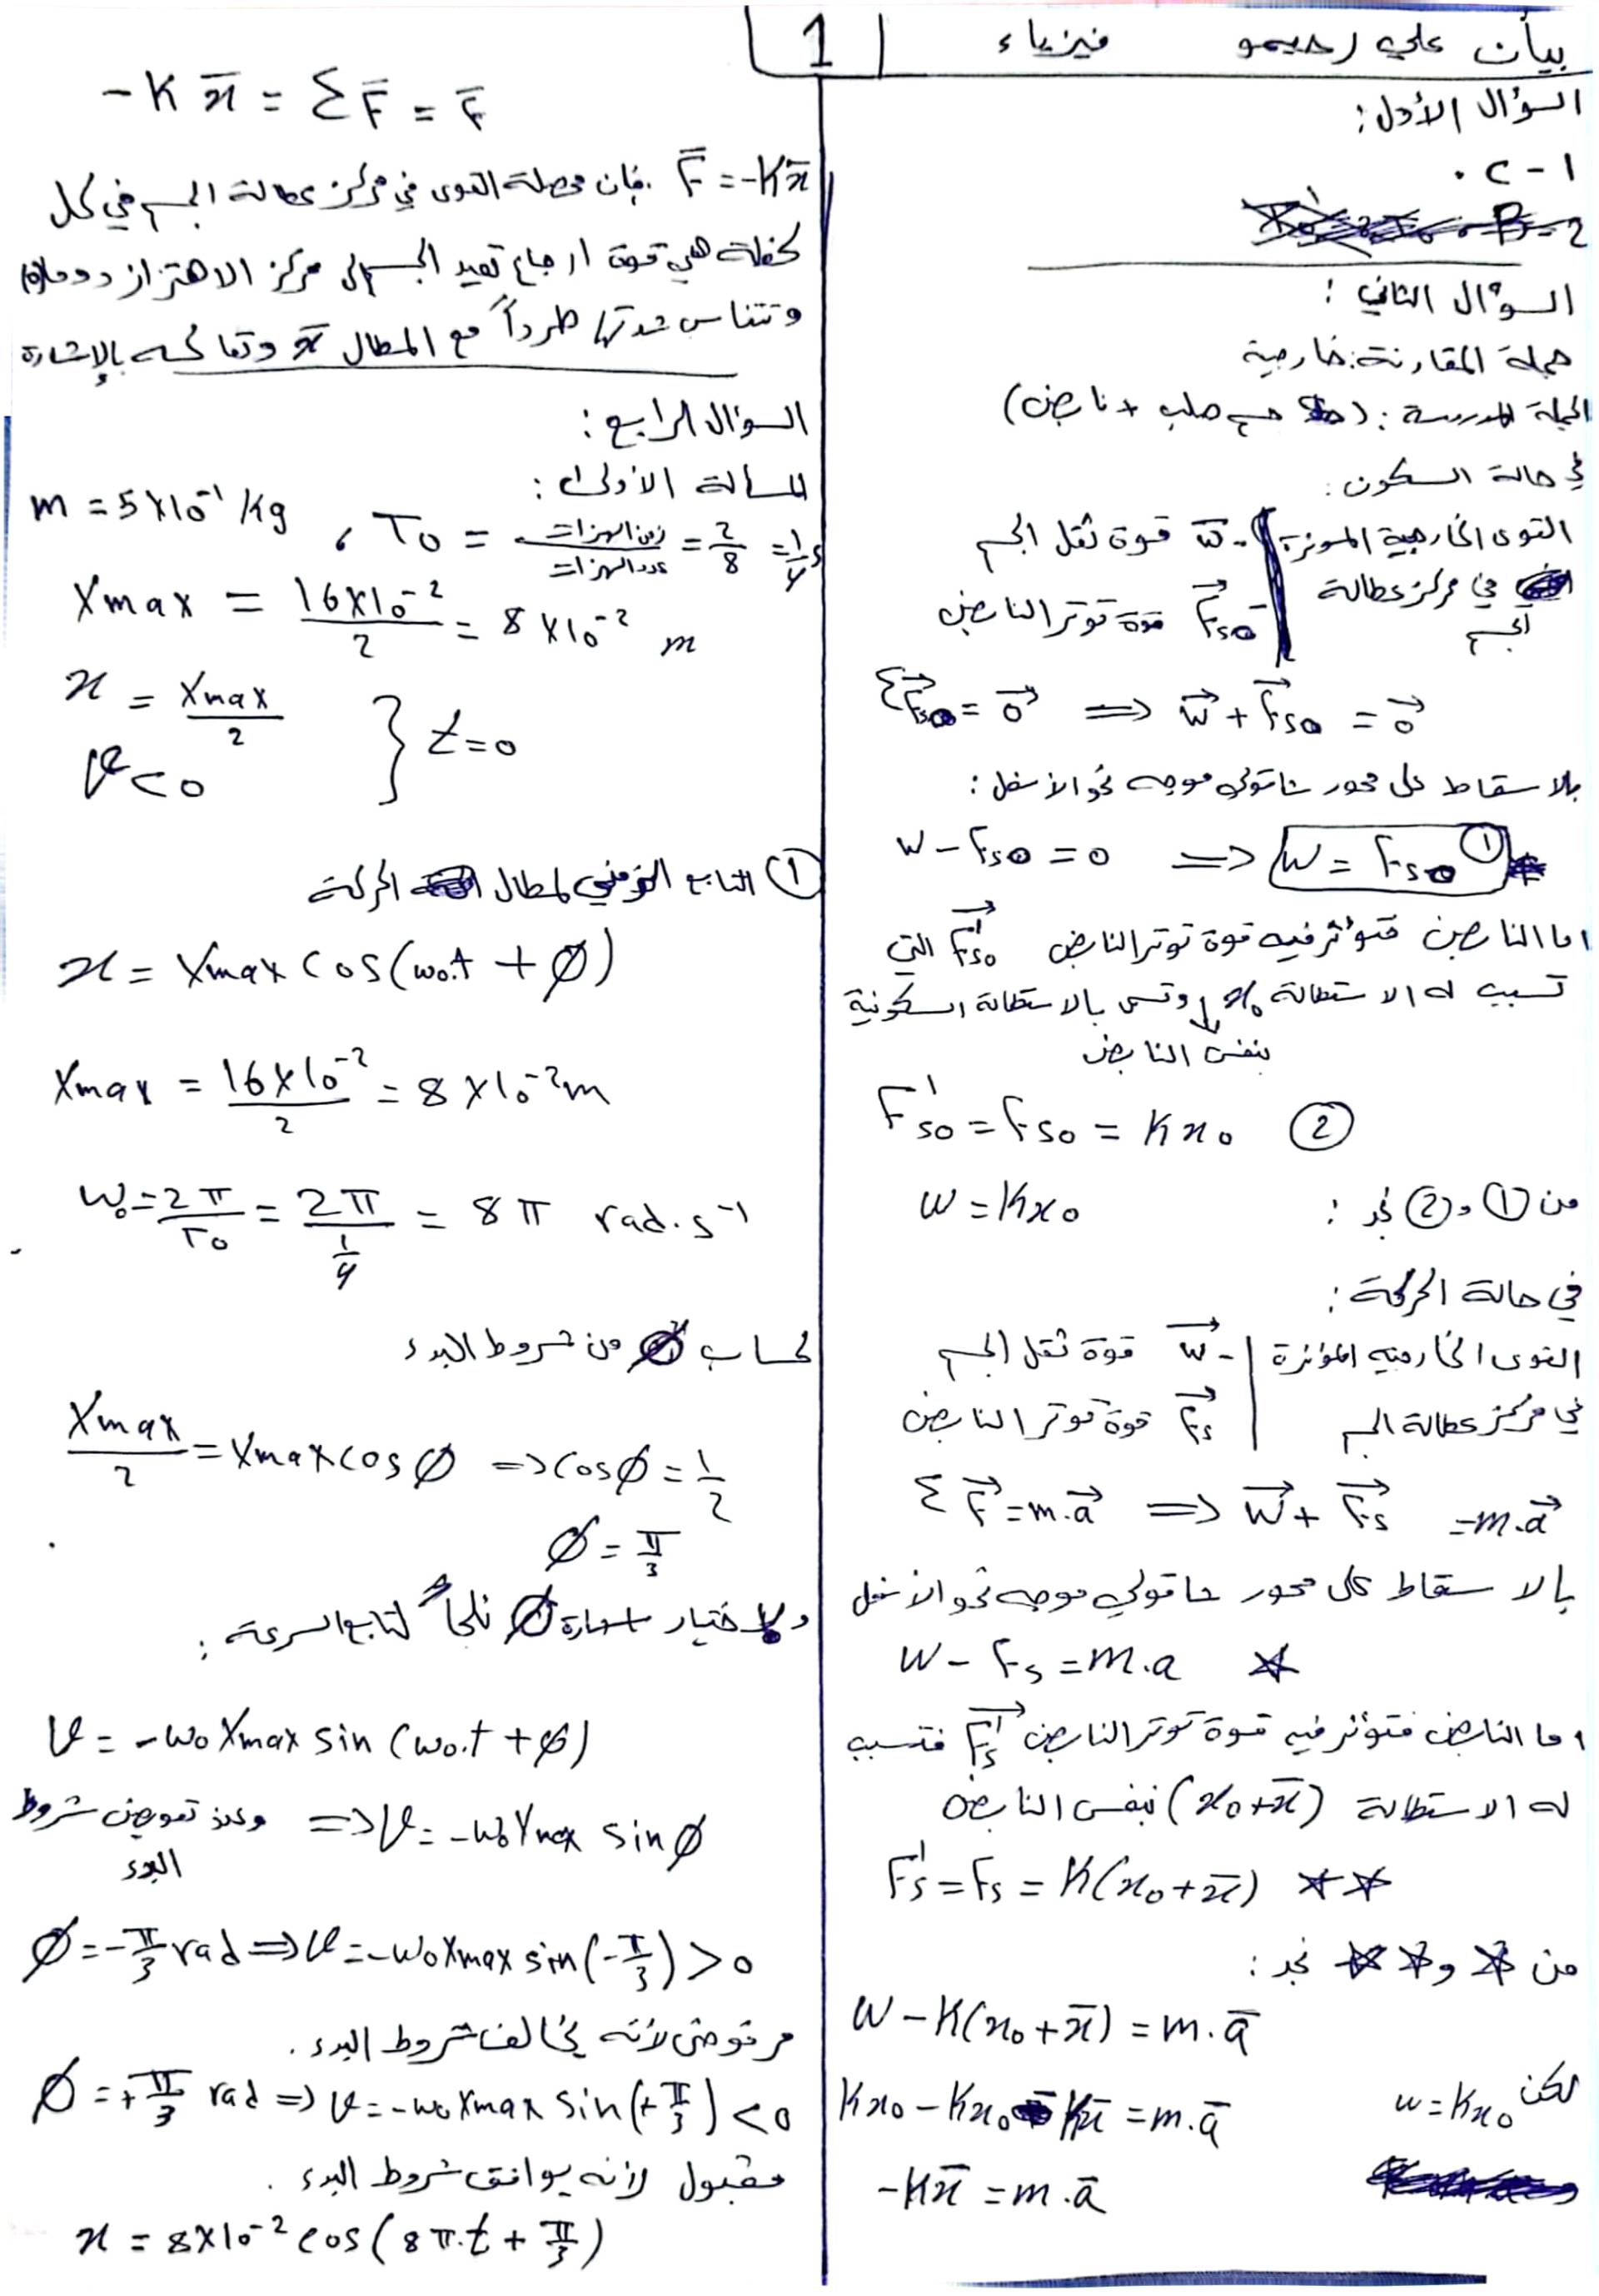 بيان علي رحيمو فيزياء 1
السؤال الأول:
1 - C .
2 - B
السؤال الثاني:
جملة المقارنة: خارجية
الجملة المدروسة: (جسم صلب + نابض)
في حالة السكون:
القوى الخارجية المؤثرة - W⃗ قوة ثقل الجسم
في مركز عطالة الجسم - F⃗s₀ قوة توتر النابض
ΣF⃗s₀ = 0⃗ ⟹ W⃗ + F⃗s₀ = 0⃗
بالاسقاط على محور شاقولي موجه نحو الأسفل:
W - Fs₀ = 0 ⟹ W = Fs₀ ①
اما النابض فتؤثر فيه قوة توتر النابض F⃗'s₀ التي
تسبب له الاستطالة x₀ وتسمى بالاستطالة السكونية
↓ بنفس النابض
F's₀ = Fs₀ = Kx₀ ②
من ① و ② نجد: W = Kx₀
في حالة الحركة:
القوى الخارجية المؤثرة - W⃗ قوة ثقل الجسم
في مركز عطالة الجسم F⃗s قوة توتر النابض
ΣF⃗ = m.a⃗ ⟹ W⃗ + F⃗s = m.a⃗
بالاسقاط على محور شاقولي موجه نحو الأسفل
W - Fs = m.a ☆
اما النابض فتؤثر فيه قوة توتر النابض F⃗'s فتسبب
له الاستطالة (x₀+x̄) بنفس النابض
F's = Fs = K(x₀+x̄) ☆☆
من ☆ و ☆☆ نجد:
W - K(x₀+x̄) = m.ā
لكن W = Kx₀
Kx₀ - Kx₀ - Kx̄ = m.ā
-Kx̄ = m.ā
-Kx̄ = ΣF̄ = F̄
F̄ = -Kx̄ فإن محصلة القوى في مركز عطالة الجسم في كل
لحظة هي قوة ارجاع تعيد الجسم إلى مركز الاهتزاز دوماً (o)
وتتناسب شدتها طرداً مع المطال x̄ وتعاكسه بالإشارة
السؤال الرابع:
المسألة الأولى:
m = 5×10⁻¹ kg , T₀ = زمن الهزات/عدد الهزات = 2/8 = 1/4 s
Xmax = 16×10⁻²/2 = 8×10⁻² m
x = Xmax/2
v<0 } t=0
① التابع الزمني لمطال الحركة
x = Xmax cos(ω₀.t + φ)
Xmax = 16×10⁻²/2 = 8×10⁻² m
ω₀ = 2π/T₀ = 2π/(1/4) = 8π rad.s⁻¹
لحساب φ من شروط البدء
Xmax/2 = Xmax cosφ ⟹ cosφ = 1/2
φ = π/3
ولاختيار φ نلجأ لتابع السرعة:
v = -ω₀ Xmax sin(ω₀.t + φ)
وعند تعويض شروط البدء ⟹ v = -ω₀ Xmax sinφ
φ = -π/3 rad ⟹ v = -ω₀ Xmax sin(-π/3) > 0
مرفوض لأنه يخالف شروط البدء .
φ = +π/3 rad ⟹ v = -ω₀ Xmax sin(+π/3) < 0
مقبول لأنه يوافق شروط البدء .
x = 8×10⁻² cos(8π.t + π/3)